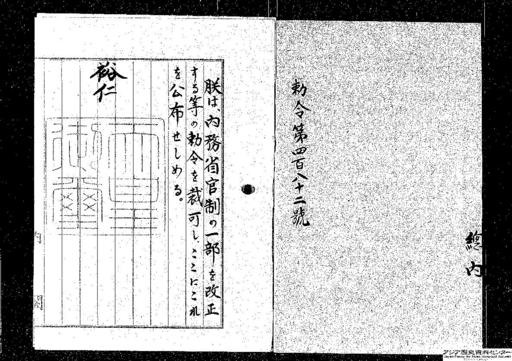 勅令第四百八十二號
總內
朕は、內務省官制の一部を改正
する等の勅令を裁可し、ここにこれ
を公布せしめる。
裕仁
天皇御璽
內閣
アジア歴史資料センター